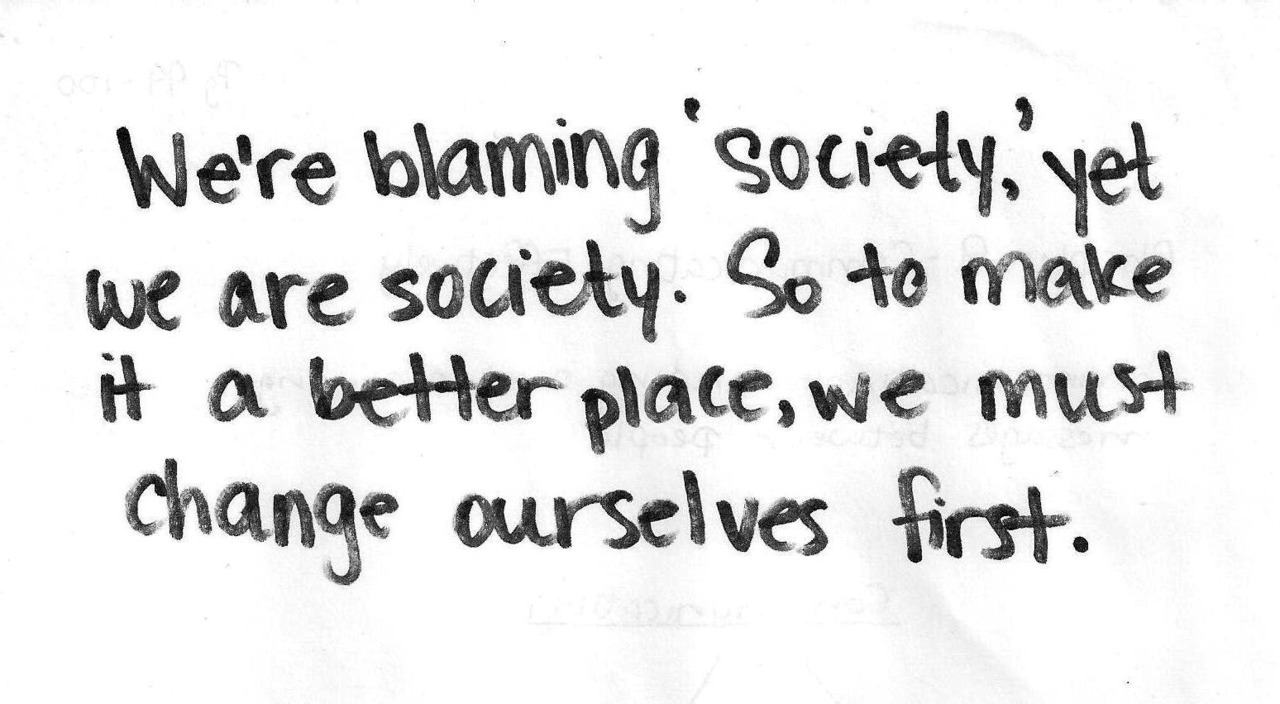 We're blaming 'society,' yet
we are society. So to make
it a better place, we must
change ourselves first.
Pg 99-100